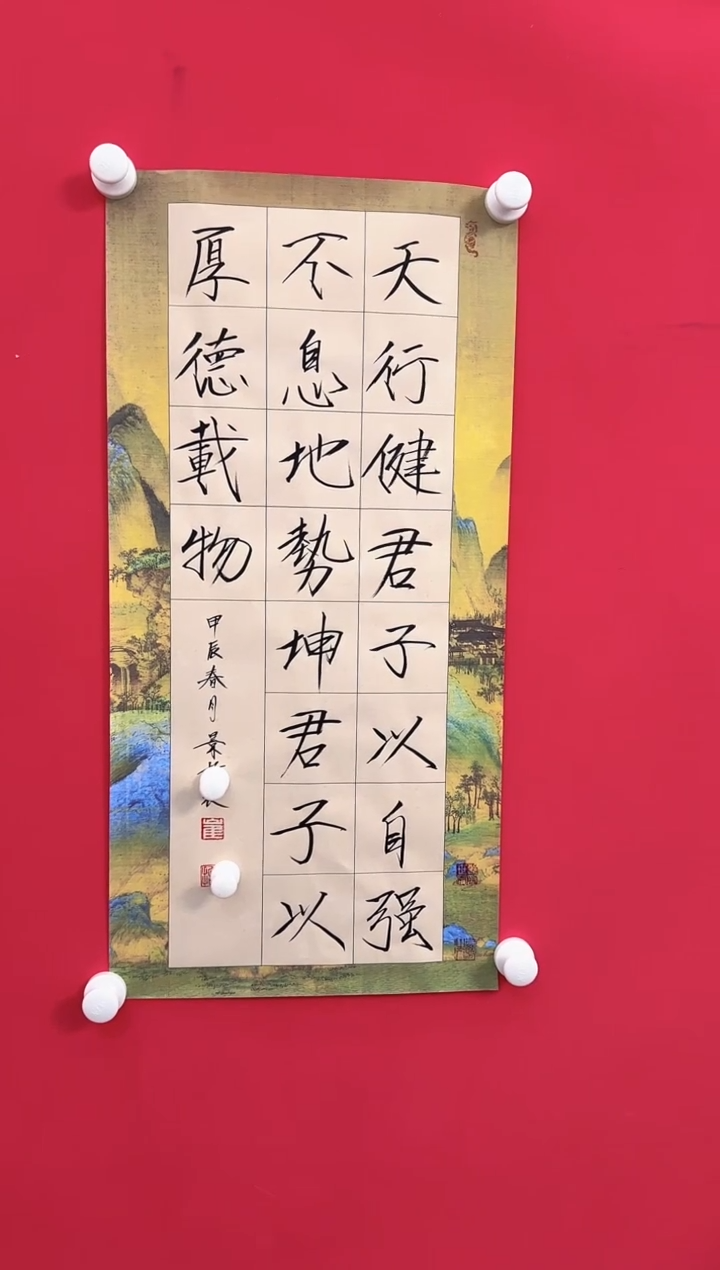 天行健君子以自强
不息地勢坤君子以
厚德載物
甲辰春月景